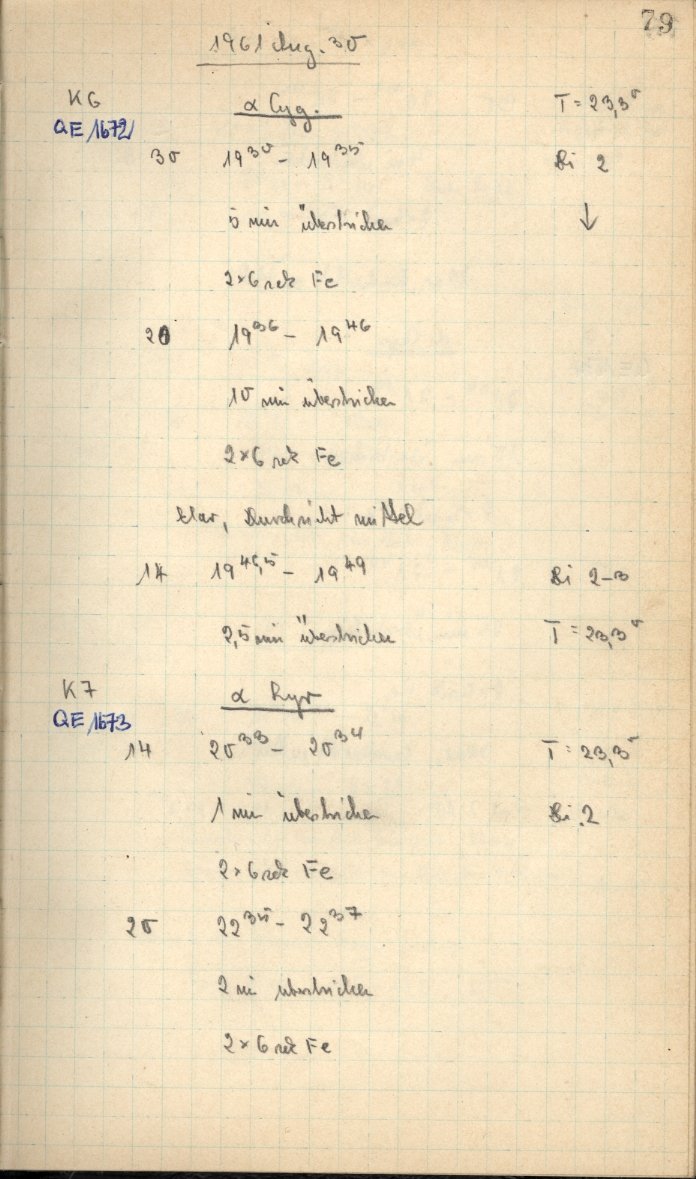 79
1961 Aug. 30
K6 α Cyg. T = 23,3°
QE 1672
30 19³⁰ - 19³⁵ Bi 2
5 min überstrichen ↓
2×6 sek Fe
20 19³⁶ - 19⁴⁶
10 min überstrichen
2×6 sek Fe
klar, Durchsicht mittel
14 19⁴⁶,⁵ - 19⁴⁹ Bi 2-3
2,5 min überstrichen T = 23,3°
K7 α Lyr
QE 1673
14 20³³ - 20³⁴ T = 23,3°
1 min überstrichen Bi 2
2×6 sek Fe
20 22³⁵ - 22³⁷
2 mi überstrichen
2×6 sek Fe